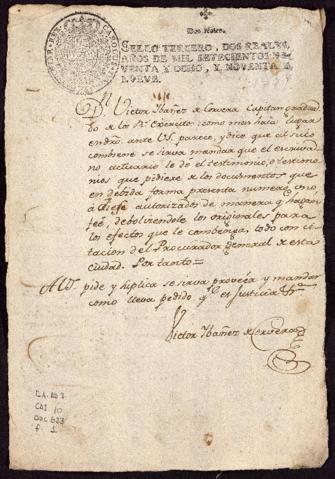 Dos reales.
SELLO TERCERO, DOS REALES,
AÑOS DE MIL SETECIENTOS NO-
VENTA Y OCHO, Y NOVENTA Y
NUEVE.
Dn. Victor Ibañez de Corvera Capitan gradua
do de los Rs. Exercitos como mas haia lugar
en dro. ante US. parece, y dice que al suio
combiene se sirva mandar que el escriva
no actuario le dé el testimonio, o testimo
nios que pidiese de los documentos que
en debida forma presenta numero uno,
a autorizados de manera q. hagan
feé, debolviendole los originales para
los efectos que le combenga, todo con ci
tacion del Procurador general de esta
ciudad. Por tanto=
A US. pide y suplica se sirva proveér y mandar
como lleva pedido q. es Justicia &a.
Victor Ibañez de Corvera
CA. AD 3
CAJ 10
DOC 633
f. 1